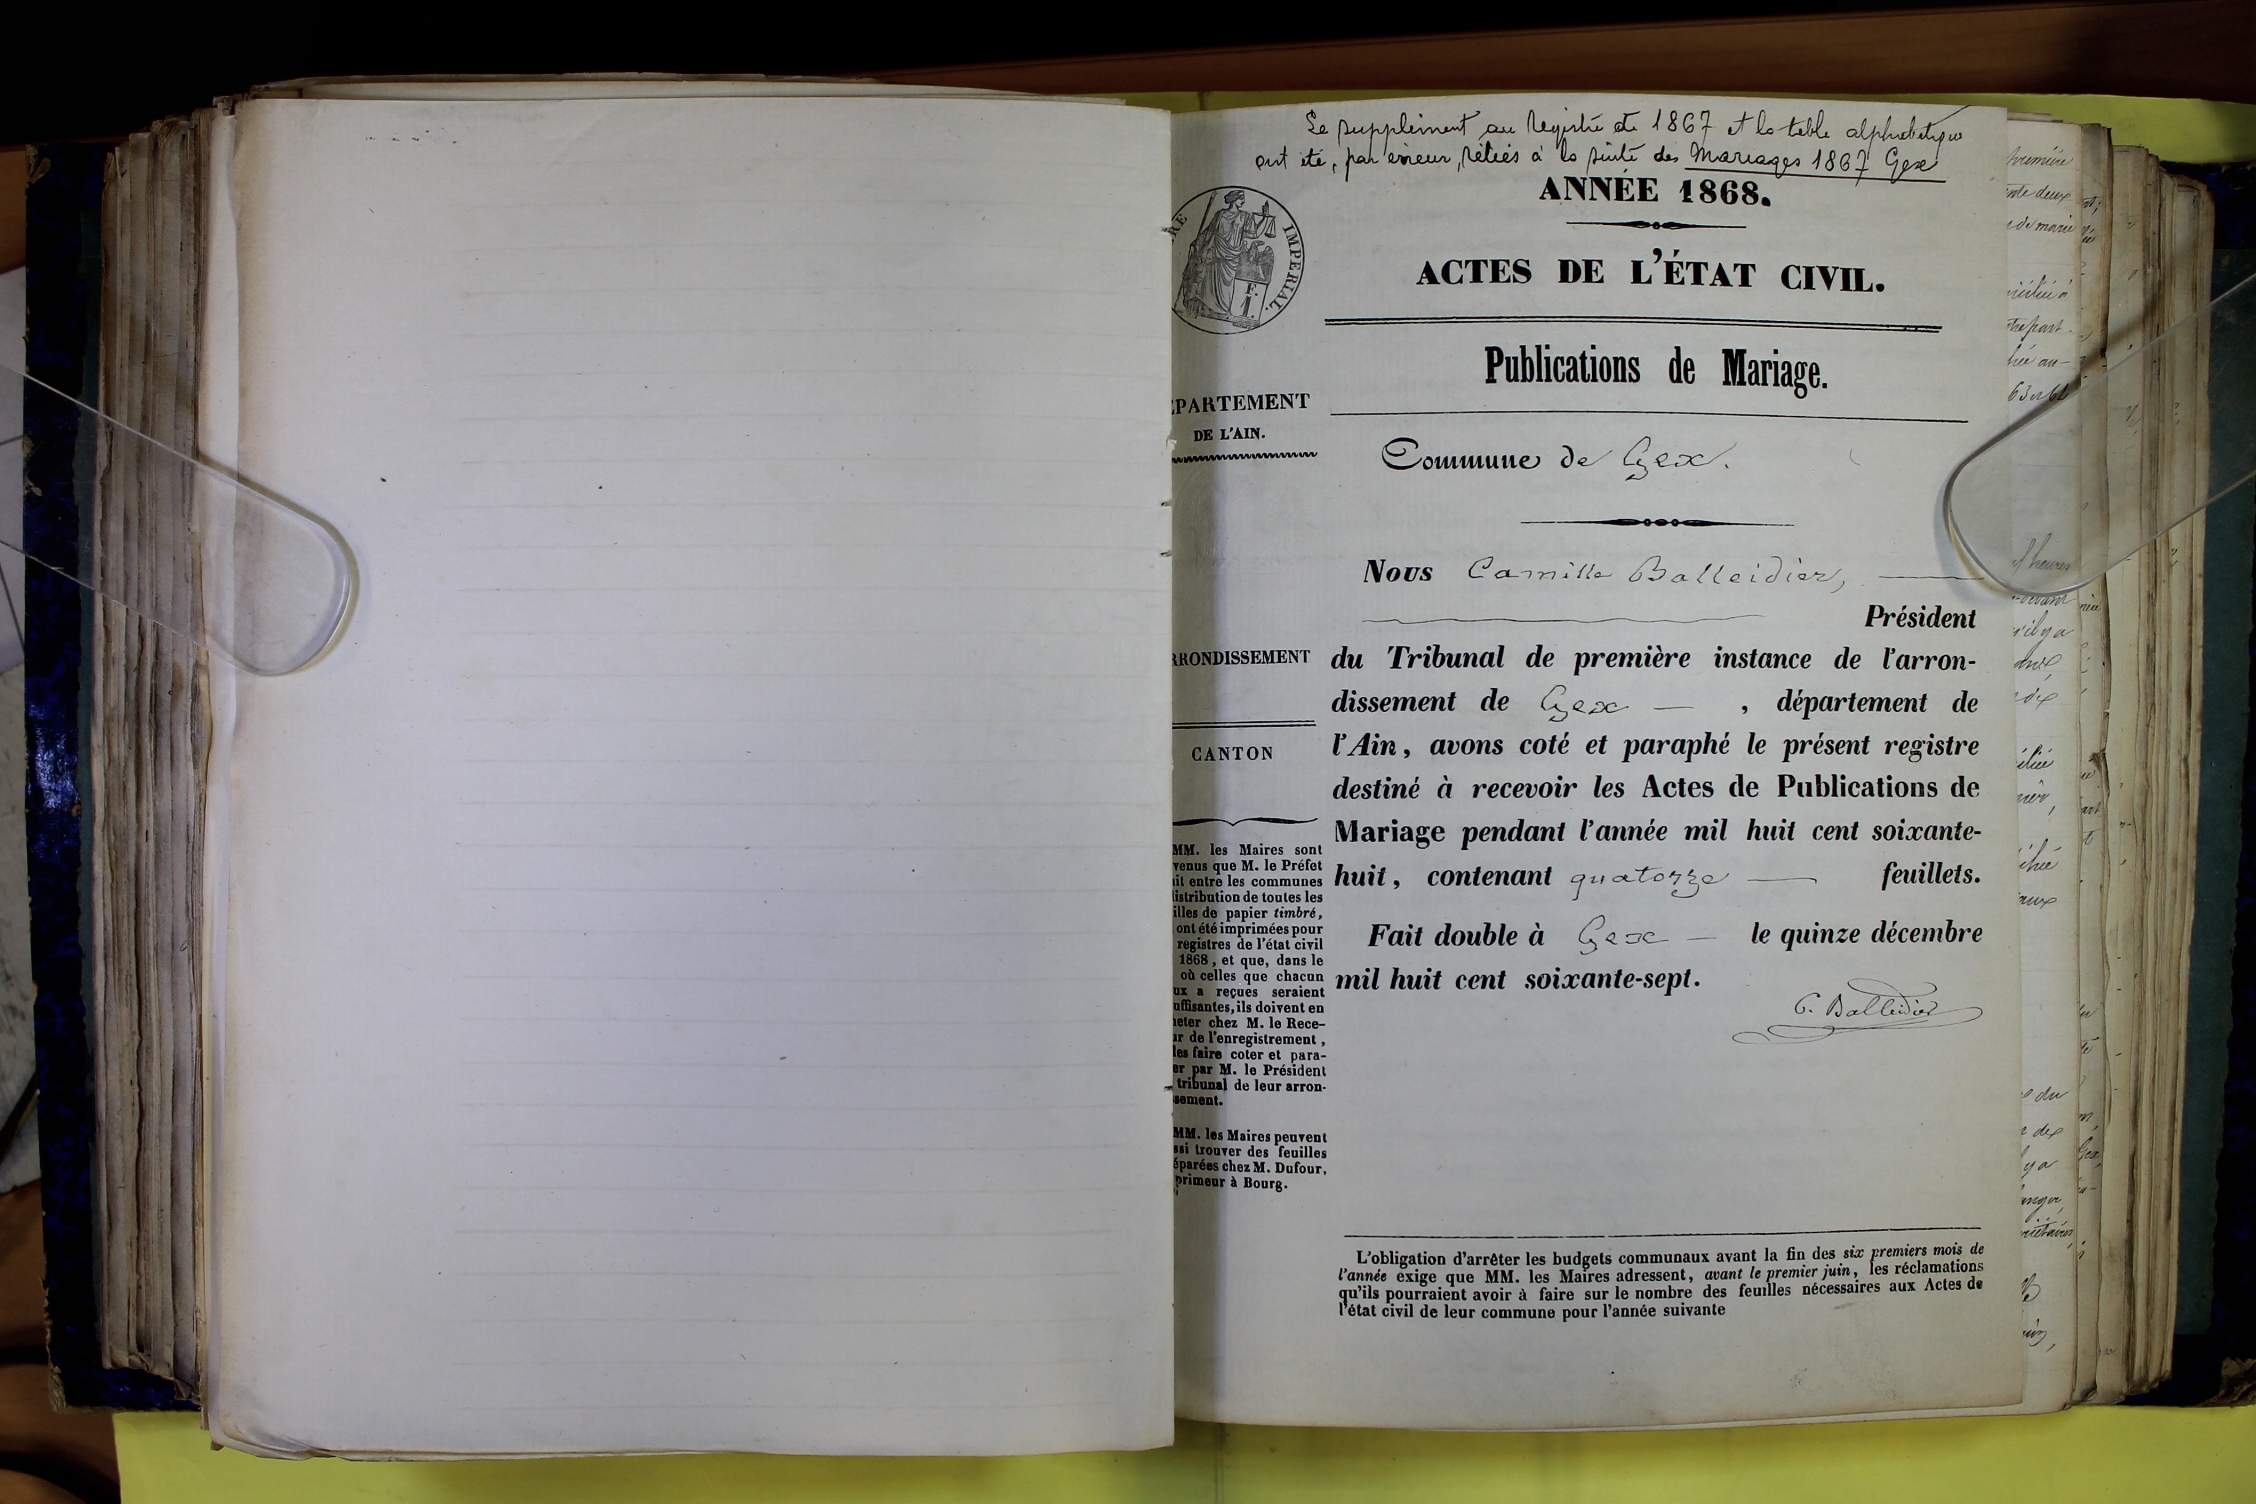 Le supplément au registre de 1867 et la table alphabétique
ont été, par erreur, reliés à la suite des Mariages 1867 Gex
ANNÉE 1868.
RE IMPERIAL.
F.
1.
ACTES DE L'ÉTAT CIVIL.
Publications de Mariage.
EPARTEMENT
DE L'AIN.
RRONDISSEMENT
CANTON
MM. les Maires sont
venus que M. le Préfet
it entre les communes
istribution de toutes les
illes de papier timbré,
ont été imprimées pour
registres de l'état civil
1868, et que, dans le
où celles que chacun
ux a reçues seraient
uffisantes, ils doivent en
heter chez M. le Rece-
ur de l'enregistrement,
les faire coter et para-
er par M. le Président
tribunal de leur arron-
sement.
MM. les Maires peuvent
ssi trouver des feuilles
éparées chez M. Dufour,
primeur à Bourg.
Commune de Gex.
Nous Camille Balleidier,
Président
du Tribunal de première instance de l'arron-
dissement de Gex — , département de
l'Ain, avons coté et paraphé le présent registre
destiné à recevoir les Actes de Publications de
Mariage pendant l'année mil huit cent soixante-
huit, contenant quatorze — feuillets.
Fait double à Gex — le quinze décembre
mil huit cent soixante-sept.
C. Balleidier
L'obligation d'arrêter les budgets communaux avant la fin des six premiers mois de
l'année exige que MM. les Maires adressent, avant le premier juin, les réclamations
qu'ils pourraient avoir à faire sur le nombre des feuilles nécessaires aux Actes de
l'état civil de leur commune pour l'année suivante